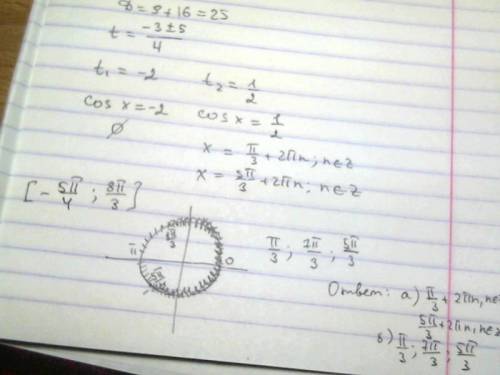 D = 9 + 16 = 25
t = (-3 ± 5)/4
t₁ = -2 t₂ = 1/2
cos x = -2 cos x = 1/2
∅
x = π/3 + 2πn; n∈Z
x = 5π/3 + 2πn; n∈Z
[-5π/4; 8π/3]
8π/3
π
0
π/3; 7π/3; 5π/3
Ответ: а) π/3 + 2πn, n∈
5π/3 + 2πn, n∈Z
б) π/3; 7π/3; 5π/3